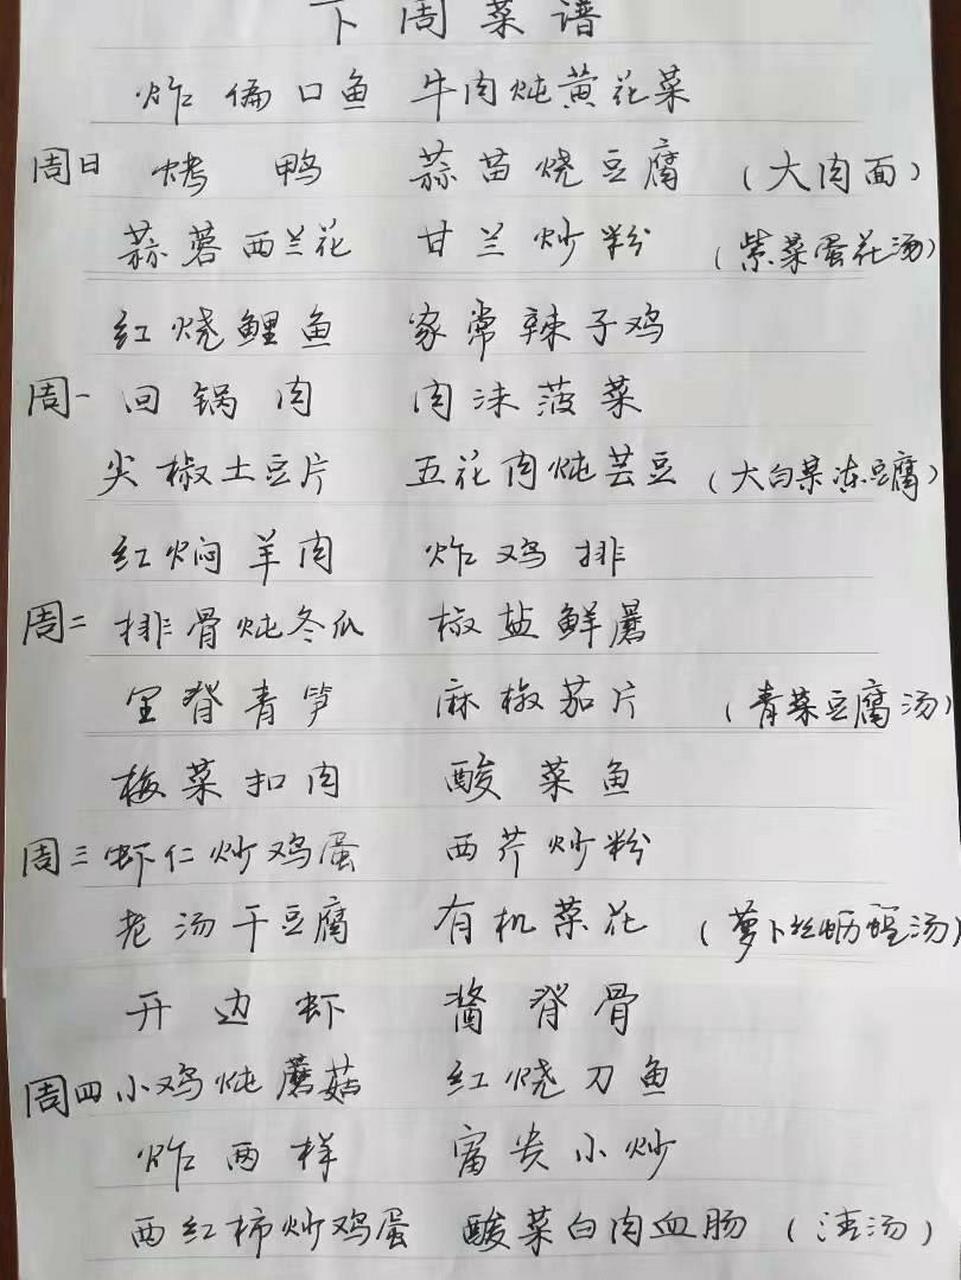 下周菜谱
炸偏口鱼 牛肉炖黄花菜
周日 烤鸭 蒜苗烧豆腐 (大肉面)
蒜蓉西兰花 甘兰炒粉 (紫菜蛋花汤)
红烧鲤鱼 家常辣子鸡
周一 回锅肉 肉沫菠菜
尖椒土豆片 五花肉炖芸豆 (大白菜冻豆腐)
红焖羊肉 炸鸡排
周二 排骨炖冬瓜 椒盐鲜蘑
里脊青笋 麻椒茄片 (青菜豆腐汤)
梅菜扣肉 酸菜鱼
周三 虾仁炒鸡蛋 西芹炒粉
老汤干豆腐 有机菜花 (萝卜丝蛎蝗汤)
开边虾 酱脊骨
周四 小鸡炖蘑菇 红烧刀鱼
炸两样 富贵小炒
西红柿炒鸡蛋 酸菜白肉血肠 (渣汤)